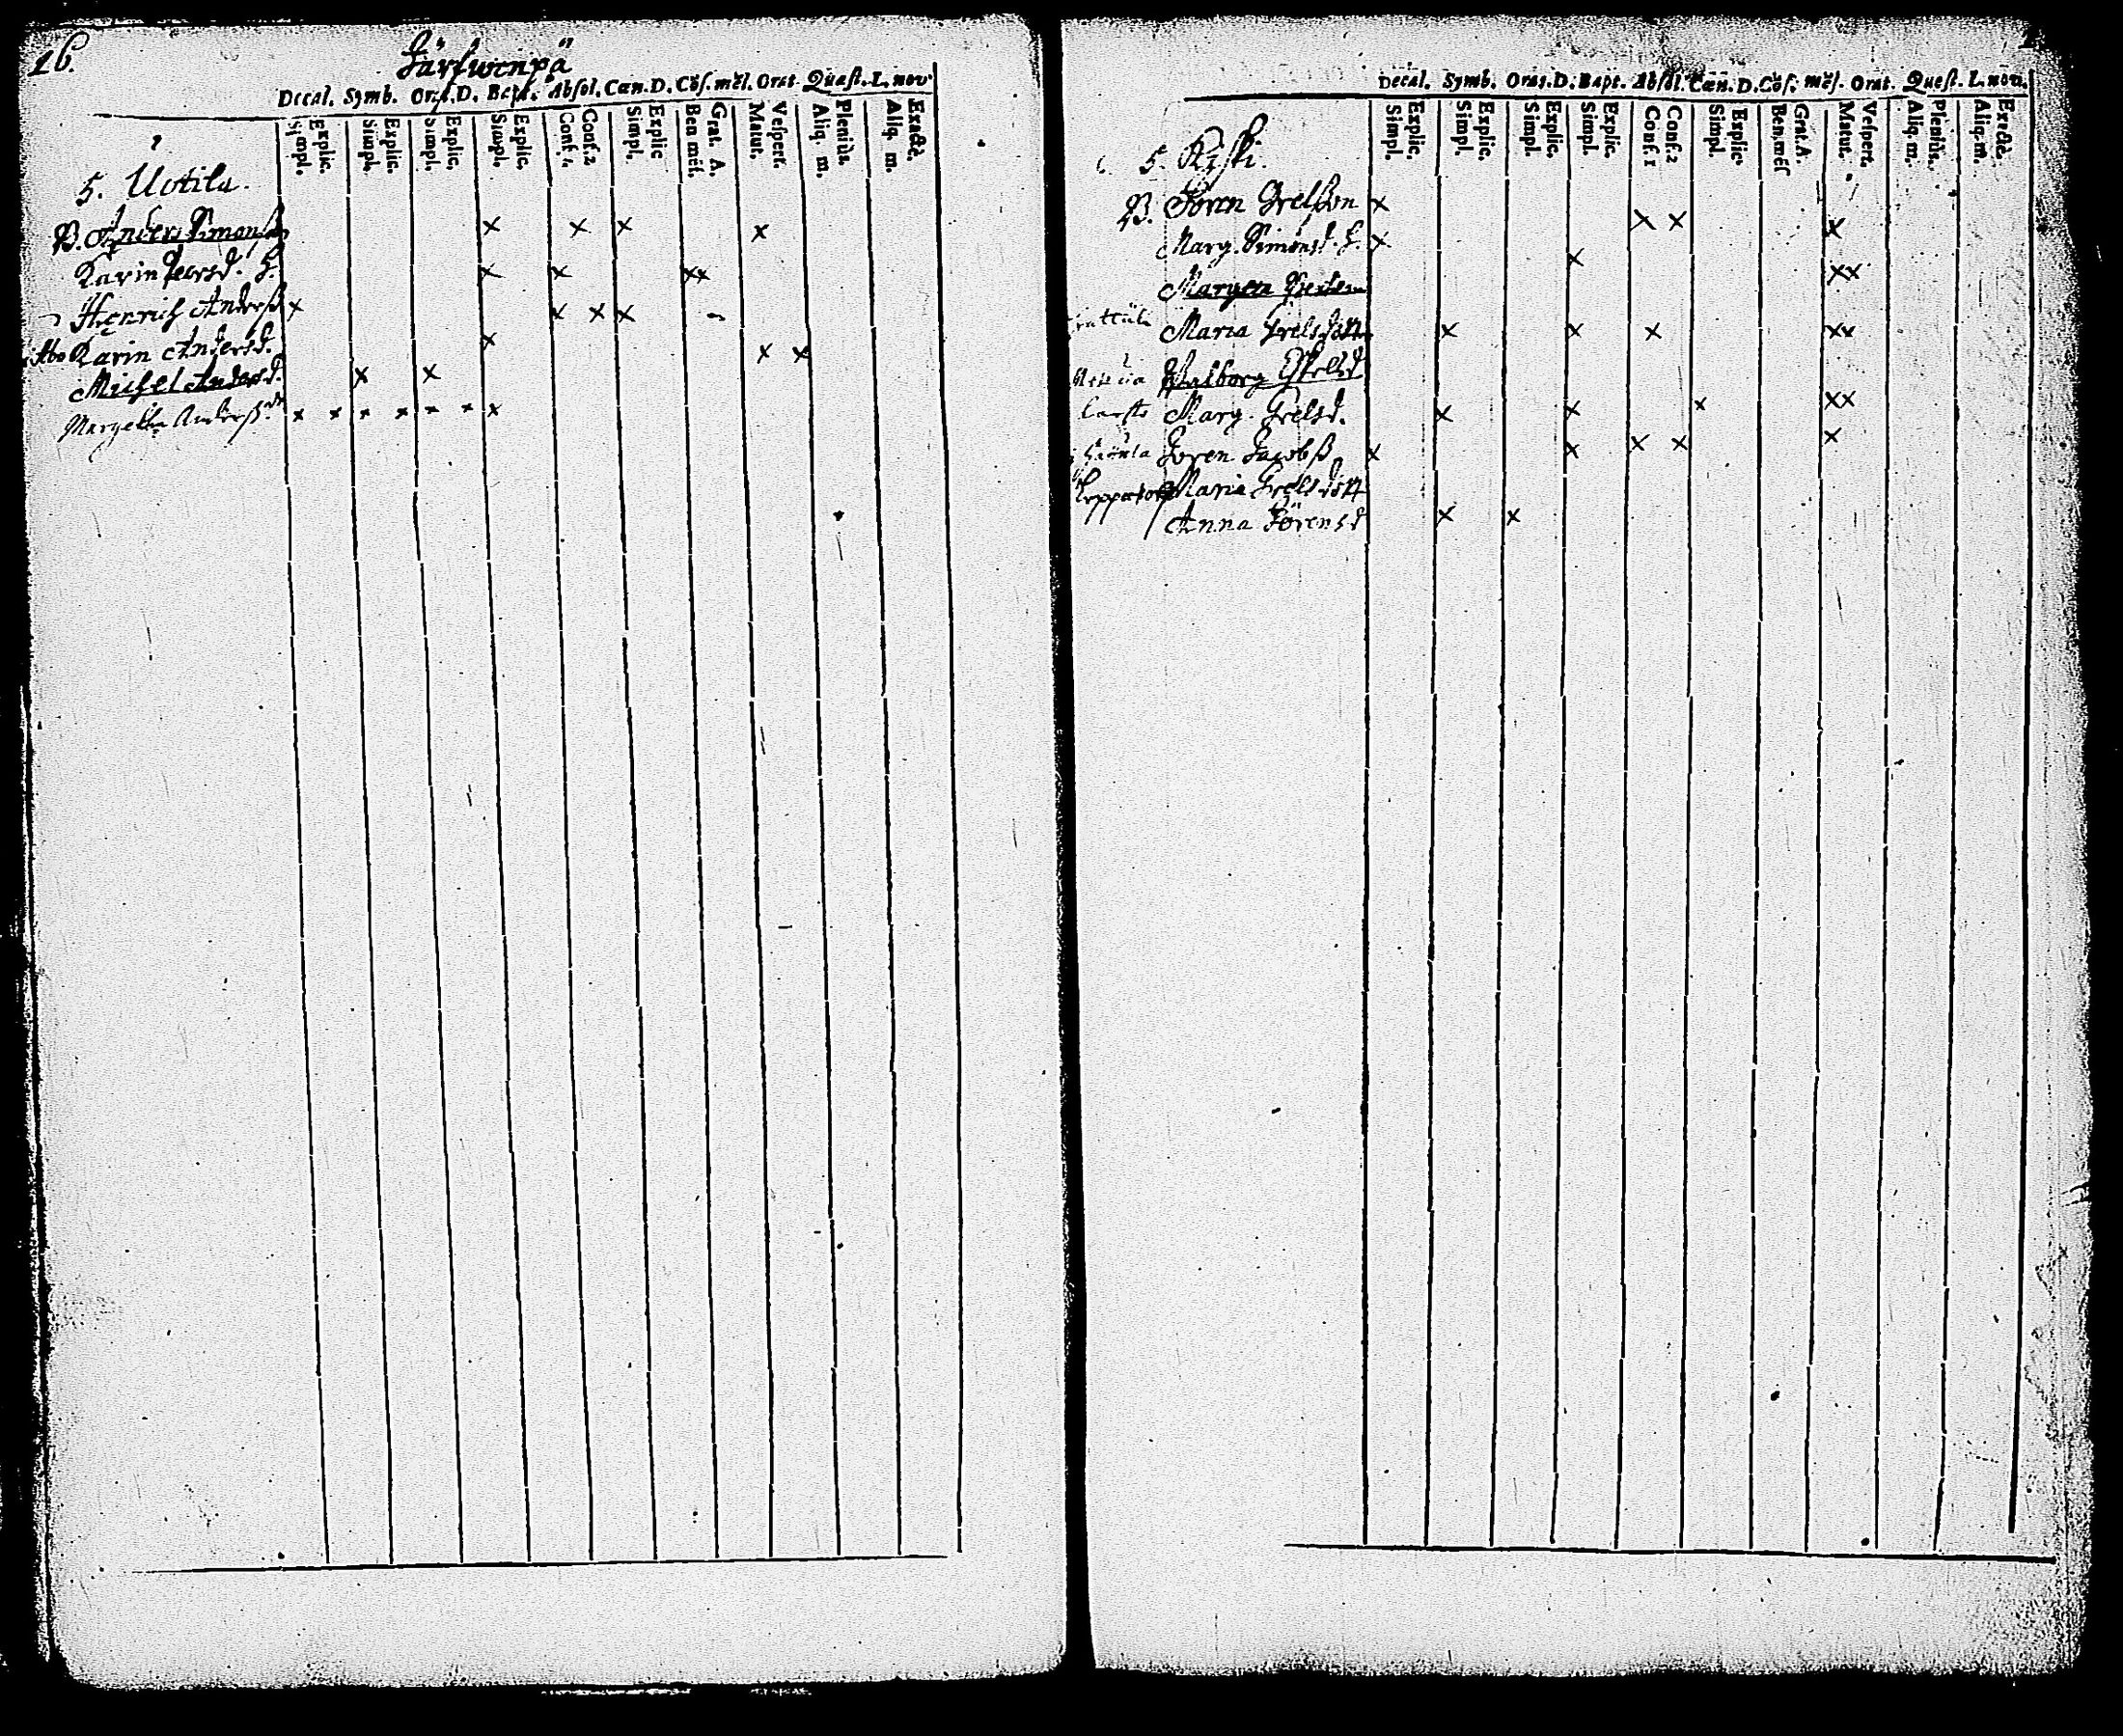 16.
Järfwenpä
Decal. Symb. Orat. D. Bapt. Absol. Cœn. D. Cõf. mẽs. Orat. Quæst. L. nov.
Simpl. Explic. Simpl. Explic. Simpl. Explic. Simpl. Explic. Conf. 1. Conf. 2 Simpl. Explic Ben mẽs. Grat. A. Matut. Vespert. Aliq. m. Pleniùs. Aliq. m. Exactè.
5. Uotila.
B. Anders Simonss x x x x
Karin Pedersd. H. x x xx
Henrich Anderss x x x x
Åbo Karin Andersd. x x x
Michel Andersd. x x
Margetha Anderss dr x x x x x x x
Decal. Symb. Orat. D. Bapt. Absol. Cœn. D. Cõf. mẽs. Orat. Quæst. L. nov.
Simpl. Explic. Simpl. Explic. Simpl. Explic. Simpl. Explic. Conf. 1 Conf. 2 Simpl. Explic Ben. mẽs Grat. A. Matut. Vespert. Aliq. m. Pleniùs. Aliq. m. Exactè.
5. Riski.
B. Jören Grelsson x x x x
Marg. Simonsd. H. x x
Margeta xx
Maria Grelsdott x x x xx
Walborg Eskelsd
Marg. Grelsd. x x x xx
Jören Jacobss x x x x x
Maria Grelsdott
Anna Jörensd x x